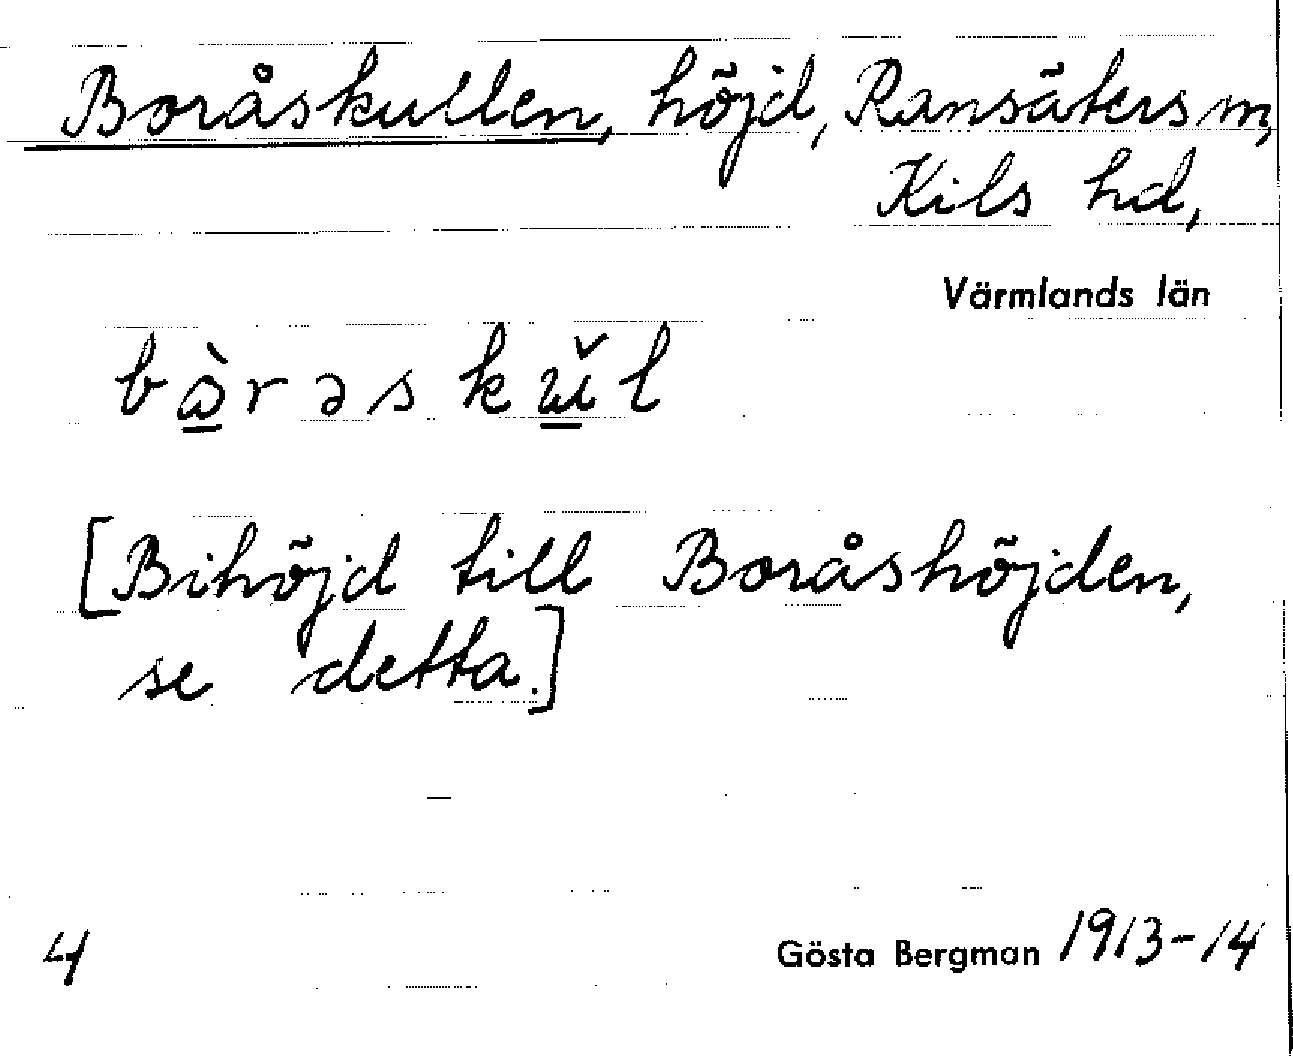 Boråskullen, höjd, Ransäters sn,
Kils hd,
Värmlands län
bɷ̀rəskɯ̌l
[Bihöjd till Boråshöjden,
se detta.]
4
Gösta Bergman 1913-14